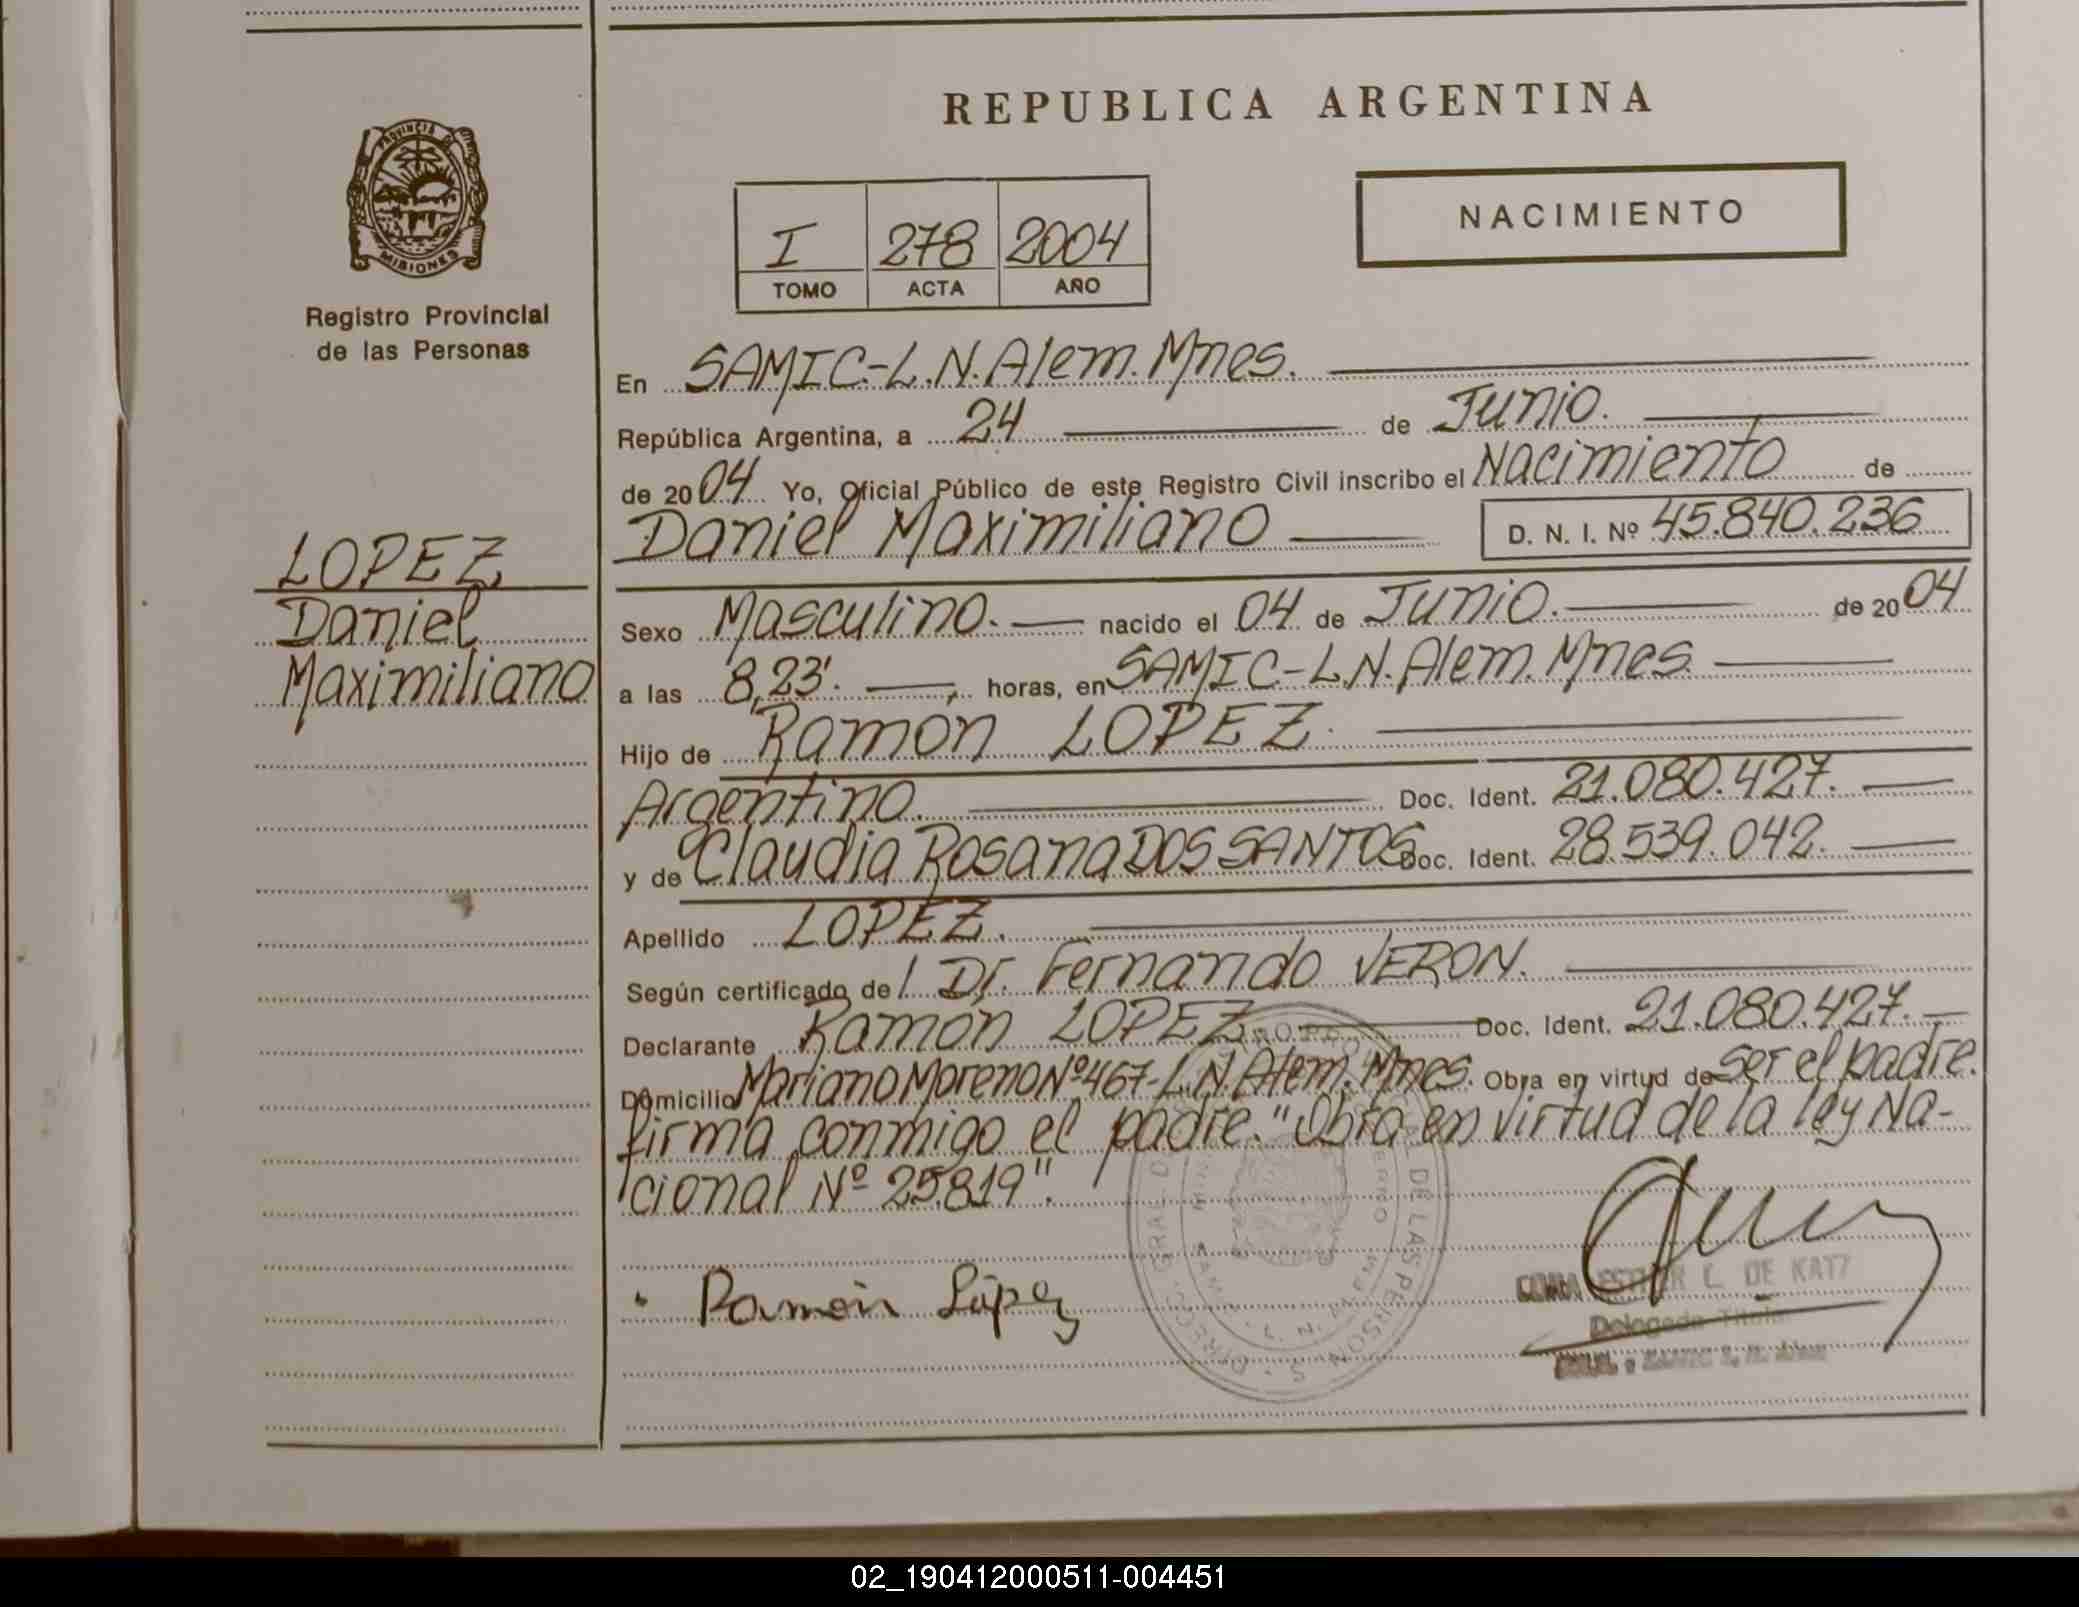 REPUBLICA ARGENTINA
PROVINCIA DE
MISIONES
Registro Provincial
de las Personas
I 278 2004
TOMO ACTA AÑO
NACIMIENTO
LOPEZ
Daniel
Maximiliano
En SAMIC-L.N.Alem.Mnes.
República Argentina, a 24 de Junio.
de 2004 Yo, Oficial Público de este Registro Civil inscribo el Nacimiento de
Daniel Maximiliano D. N. I. Nº 45.840.236
Sexo Masculino. nacido el 04 de Junio. de 2004
a las 8,23'. horas, en SAMIC-L.N.Alem.Mnes.
Hijo de Ramón LOPEZ.
Argentino. Doc. Ident. 21.080.427.
y de Claudia Rosana DOS SANTOS Doc. Ident. 28.539.042.
Apellido LOPEZ.
Según certificado de l Dr. Fernando VERON.
Declarante Ramón LOPEZ Doc. Ident. 21.080.427.
Domicilio Mariano Moreno Nº467-L.N.Alem.Mnes. Obra en virtud de ser el padre.
firma conmigo el padre. "Obra en virtud de la ley Na-
cional Nº 25.819".
Ramón López
ESTHER L. DE KATZ
Delegada Titular
DE LAS PERSONAS
02_190412000511-004451